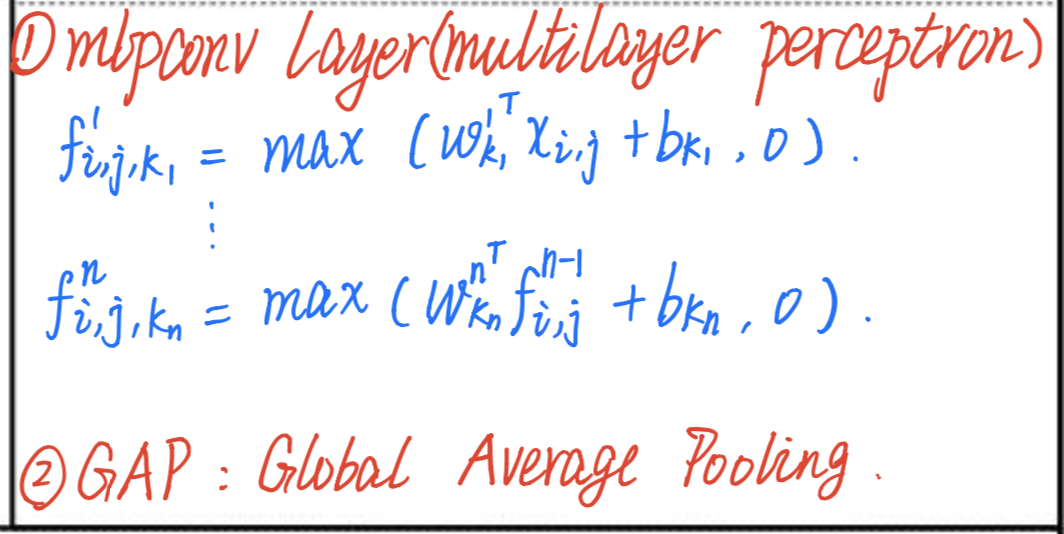 ① mlpconv Layer(multilayer perceptron)
f¹ᵢ,ⱼ,ₖ₁ = max (w¹ₖ₁ᵀ xᵢ,ⱼ + bₖ₁, 0).
⋮
fⁿᵢ,ⱼ,ₖₙ = max (wⁿₖₙᵀ fⁿ⁻¹ᵢ,ⱼ + bₖₙ, 0).
② GAP: Global Average Pooling.